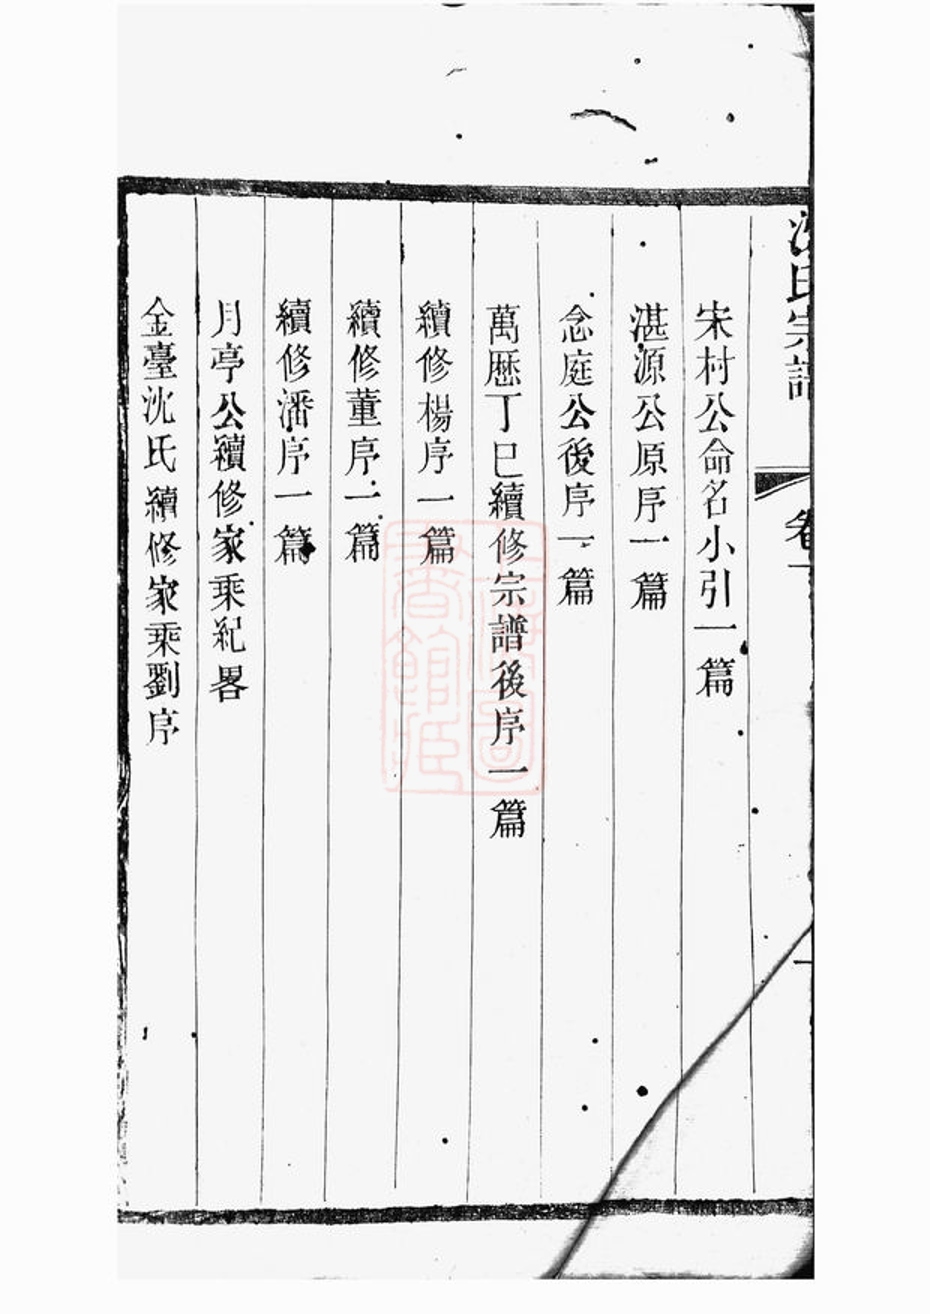 沈氏宗譜 卷一
宋村公命名小引一篇
湛源公原序一篇
念庭公後序一篇
萬厯丁巳續修宗譜後序一篇
續修楊序一篇
續修董序一篇
續修潘序一篇
月亭公續修家乘紀畧
金臺沈氏續修家乘劉序